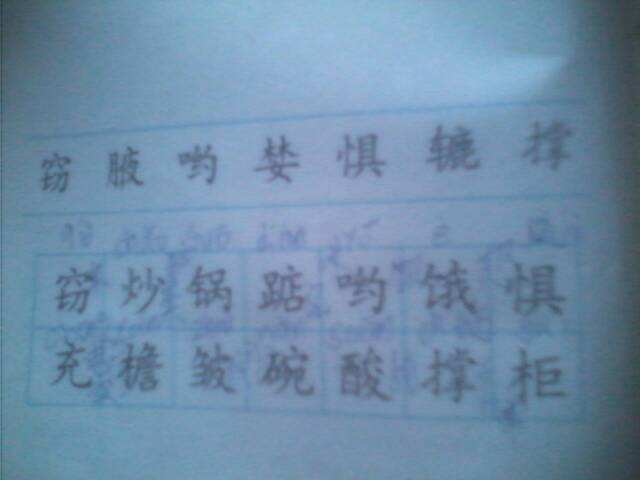 窃 腋 哟 婪 惧 辘 撑
窃 炒 锅 踮 哟 饿 惧
充 檐 皱 碗 酸 撑 柜